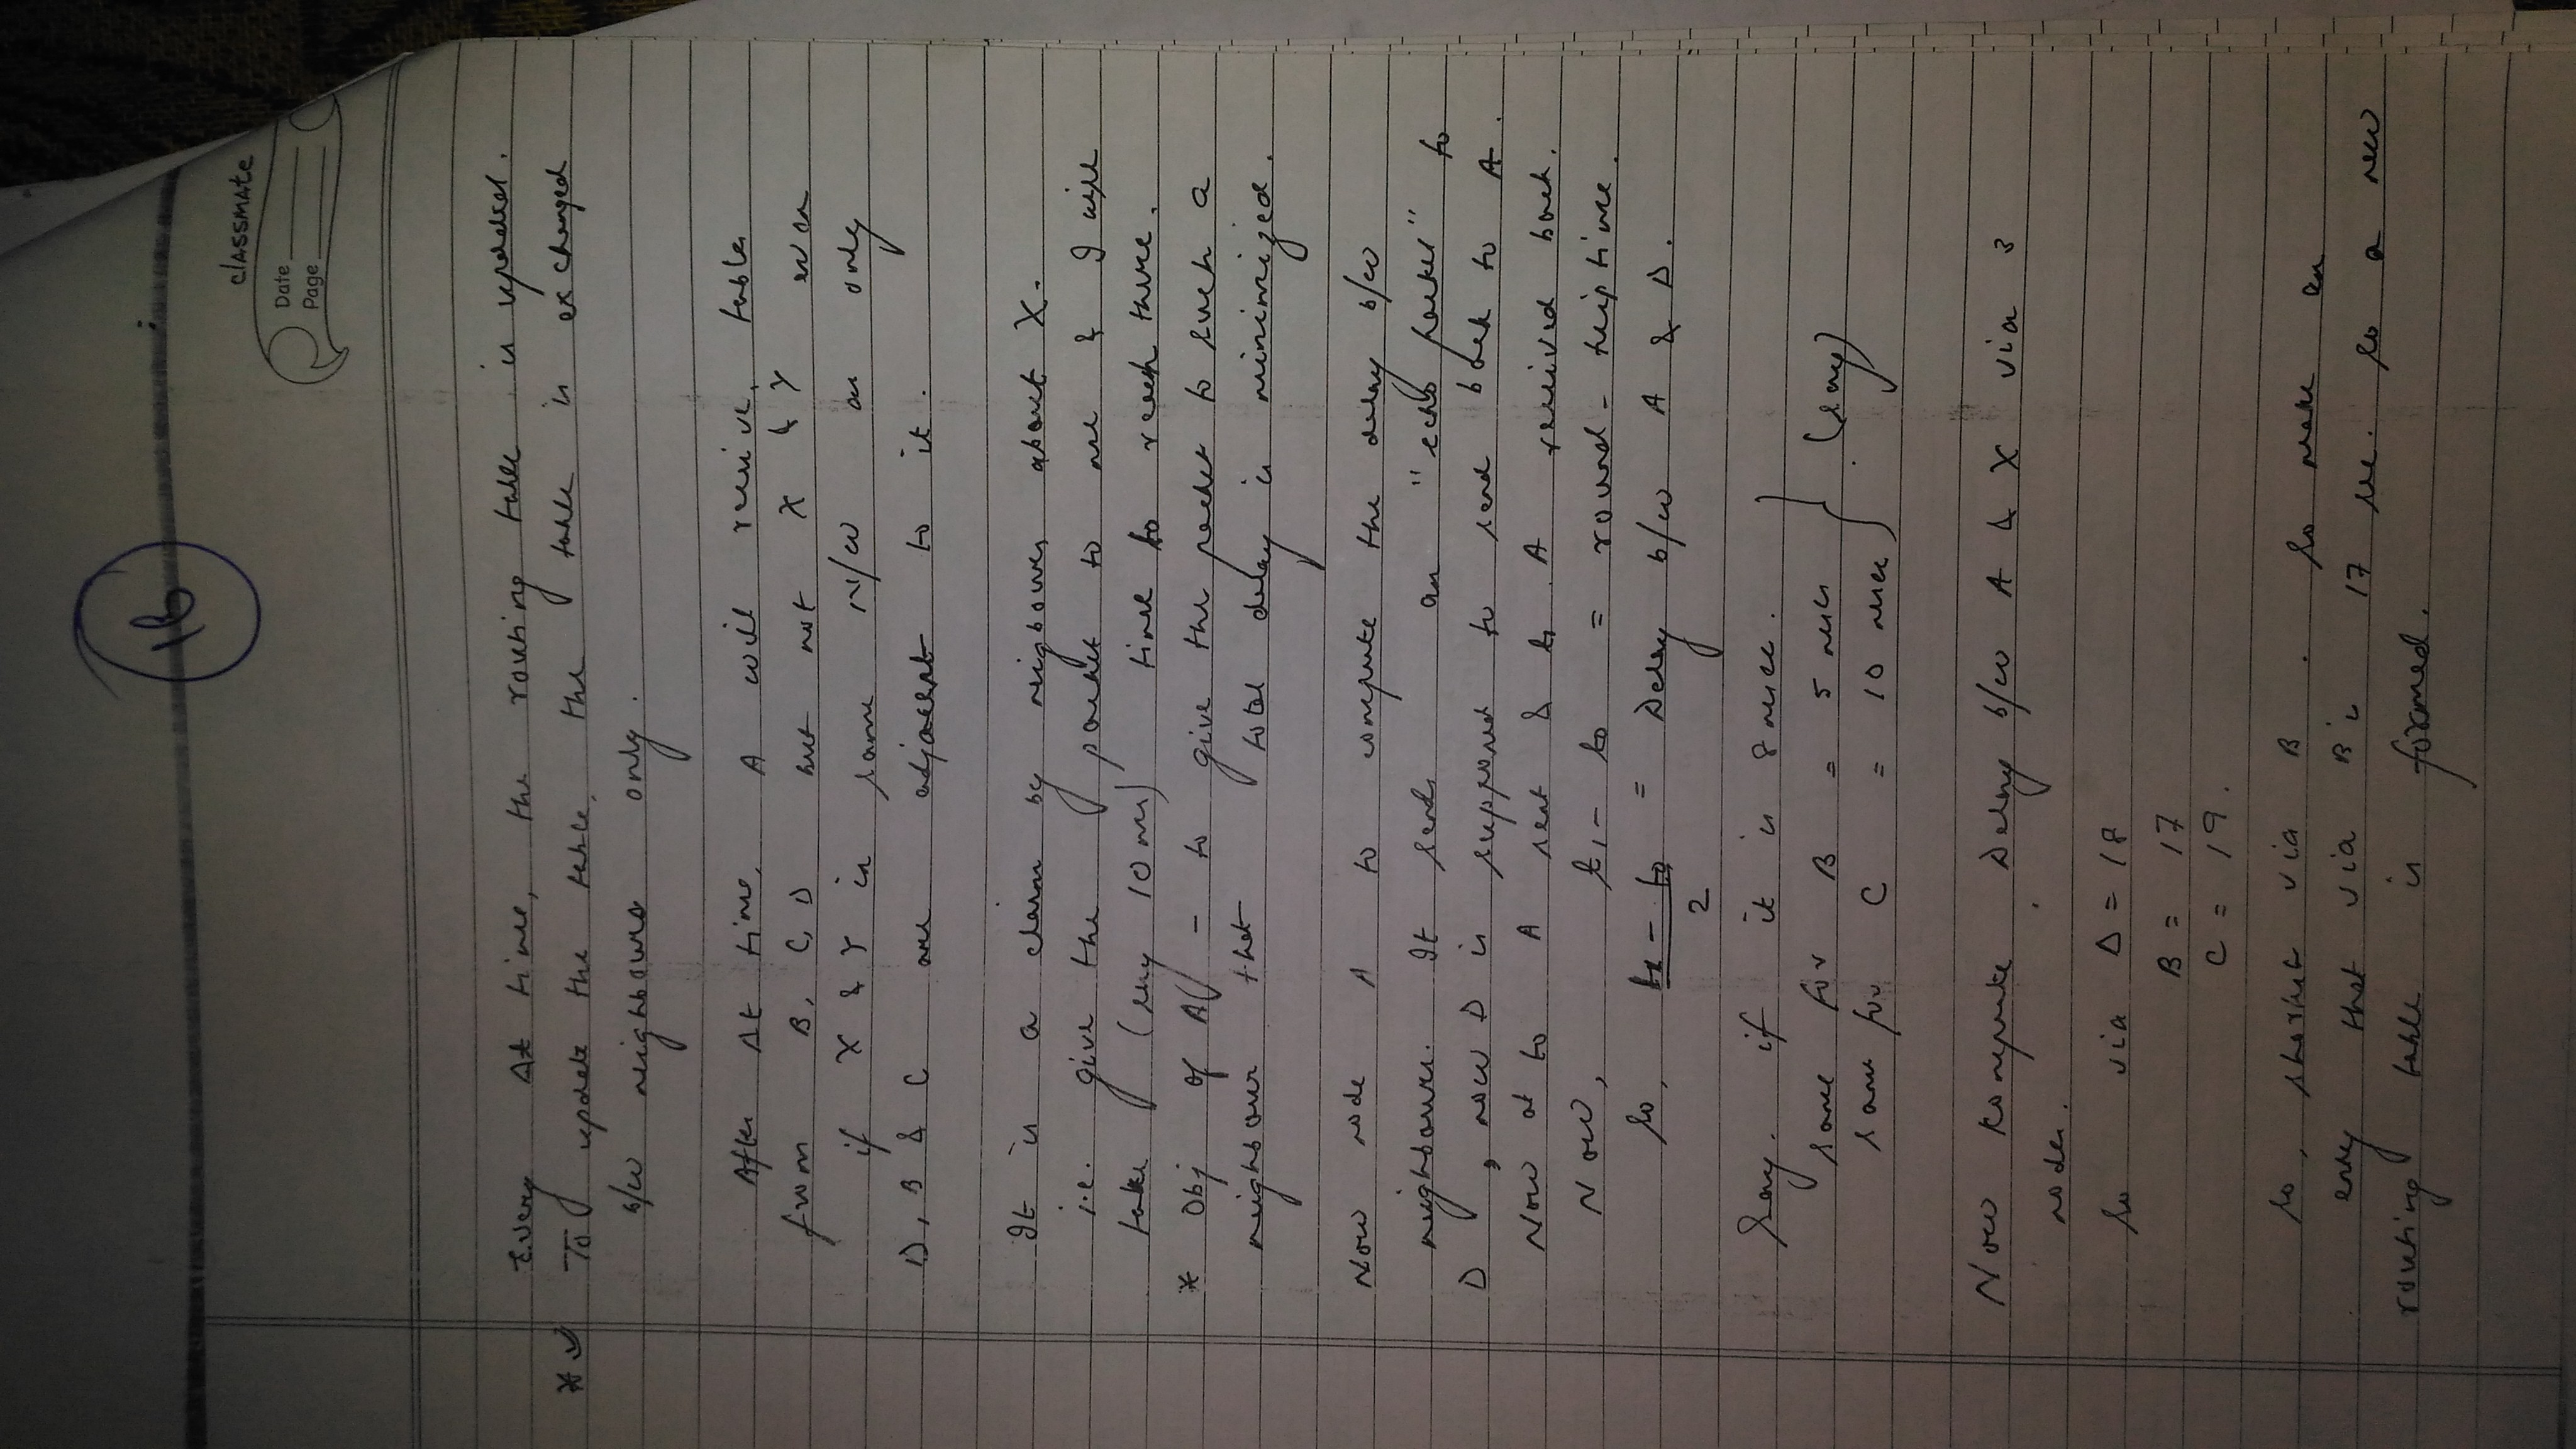 16
classmate
Date
Page
Every Δt time, the routing table is updated.
* To update the table, the table is exchanged
b/w neighbours only.
After Δt time, A will receive, tables
from B, C, D but not X & Y
if X & Y is same N/w as only
D, B & C are adjacent to it.
It is a claim by neigbours about X.
i.e. give the packet to me & I will
take (say 10 ms) time to reach there.
* Obj of A - to give the packet to such a
neighbour that total delay is minimized.
Now node A to compute the delay b/w
neighbours. It sends an "echo packet" to
D, now D is supposed to send back to A.
Now at to A sent & t1 A received back.
Now, t1 - to = round-trip time.
So, t1 - to / 2 = Delay b/w A & D.
Say if it is 8 msec.
same for B = 5 msec } (say)
same for C = 10 msec
Now compute Delay b/w A & X via 3
nodes.
So via D = 18
B = 17
C = 19.
So, shortest via B. So make an
entry that via B is 17 sec. So a new
routing table is formed.